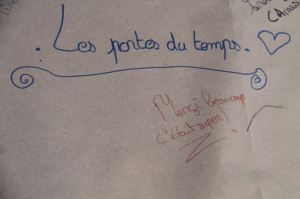 . Les portes du temps .
Merci beaucoup
c'était super!